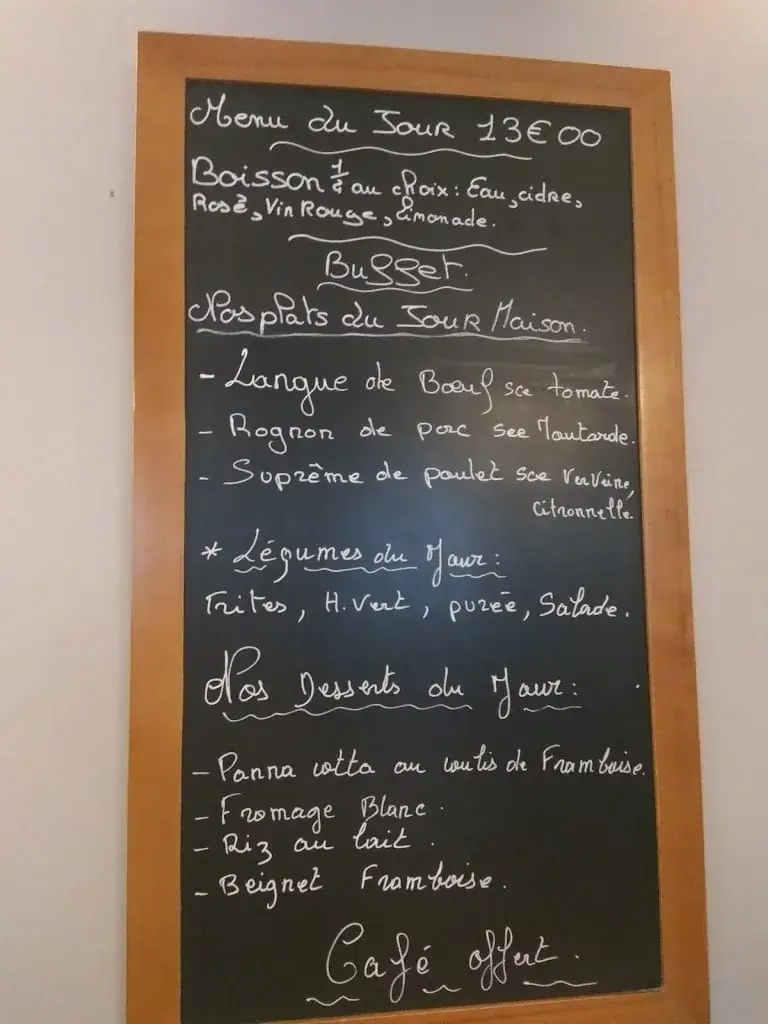 Menu du Jour 13€00
Boisson 1/4 au choix: Eau, cidre,
Rosé, Vin Rouge, limonade.
Buffet.
Nos plats du Jour Maison.
- Langue de Bœuf sce tomate.
- Rognon de porc sce Moutarde.
- Suprême de poulet sce Verveine,
citronnelle.
* Légumes du Jour:
Frites, H. Vert, purée, Salade.
Nos Desserts du Jour:
- Panna cotta au coulis de Framboise.
- Fromage Blanc.
- Riz au lait.
- Beignet Framboise.
Café offert.